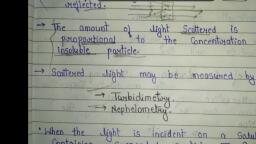 reflected.
→ The amount of light Scattered is
proportional to the Concentration
insoluble particle.
→ Scattered light may be measured by
→ Turbidimetry.
→ Nephelometry.
• When the light is incident on a